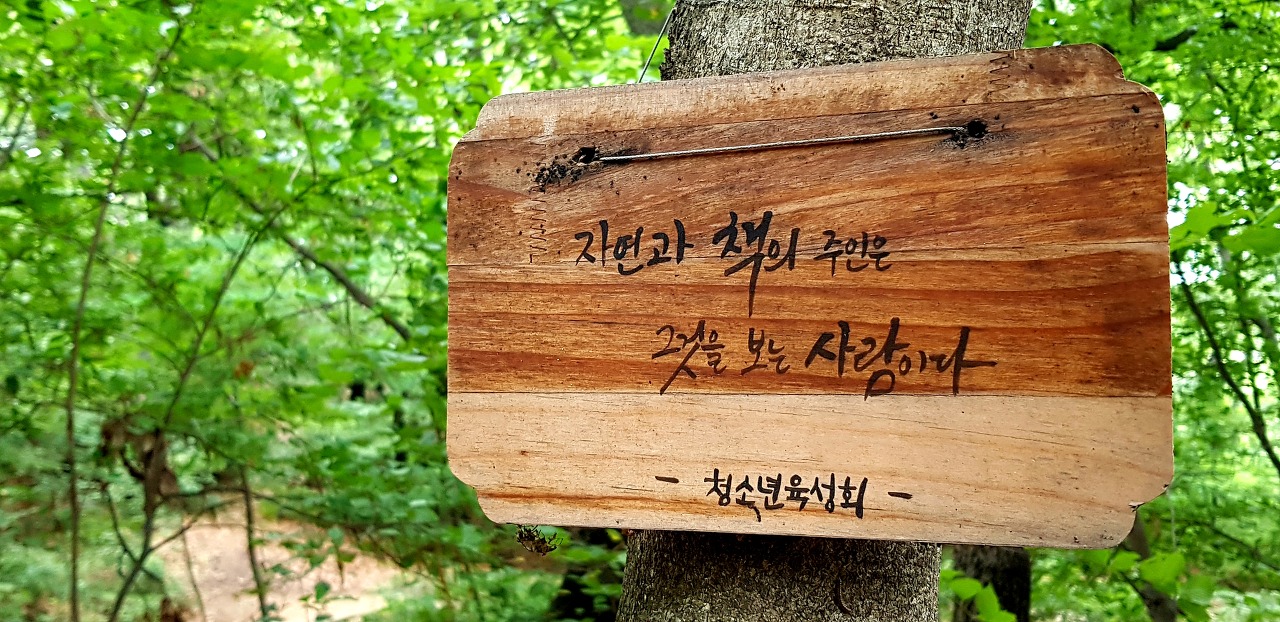 자연과 책의 주인은
그것을 보는 사람이다
- 청소년육성회 -